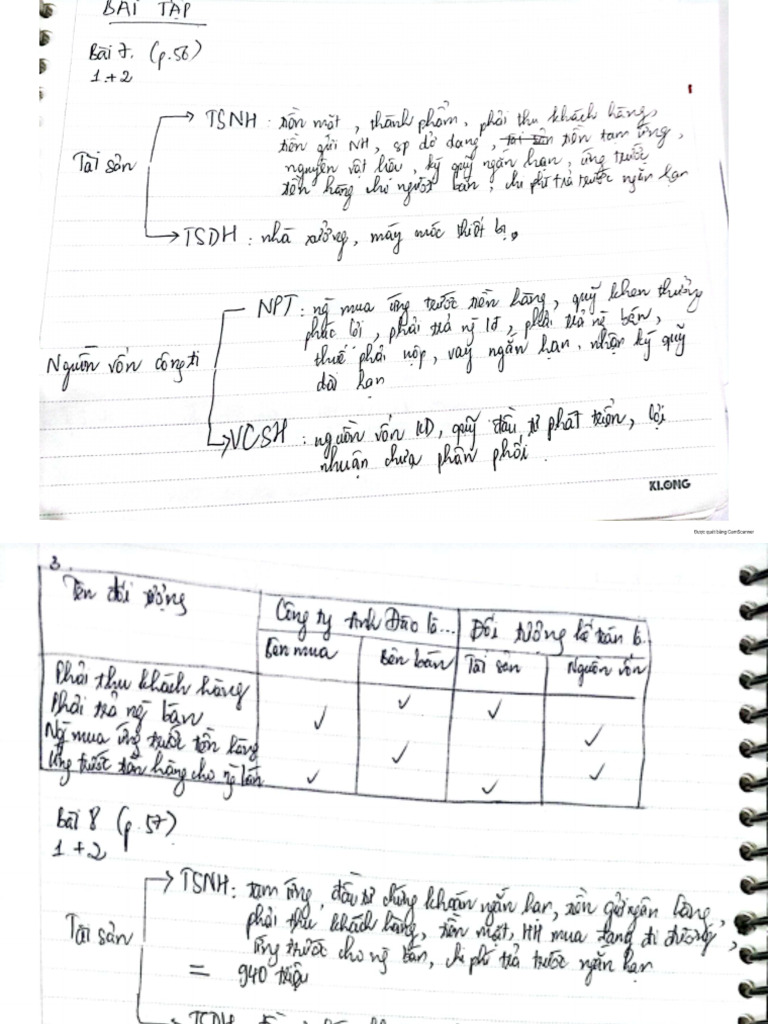 BÀI TẬP
Bài 7. (p.56)
1+2
Tài sản
TSNH: tiền mặt, thành phẩm, phải thu khách hàng,
tiền gửi NH, sp dở dang, tiền tạm ứng,
nguyên vật liệu, ký quỹ ngắn hạn, ứng trước
tiền hàng cho người bán, chi phí trả trước ngắn hạn
TSDH: nhà xưởng, máy móc thiết bị.
Nguồn vốn công ti
NPT: ng mua ứng trước tiền hàng, quỹ khen thưởng
phúc lợi, phải trả ng lđ, phải trả ng bán,
thuế phải nộp, vay ngắn hạn, nhận ký quỹ
dài hạn
VCSH: nguồn vốn KD, quỹ đầu tư phát triển, lợi
nhuận chưa phân phối.
KLONG
Được quét bằng CamScanner
3.
Tên đối tượng
Công ty Anh Đào là... Đối tượng kế toán là
Bên mua Bên bán Tài sản Nguồn vốn
Phải thu khách hàng ✓ ✓
Phải trả ng bán ✓ ✓
Ng mua ứng trước tiền hàng ✓ ✓
Ứng trước tiền hàng cho ng bán ✓ ✓
Bài 8 (p.57)
1+2
Tài sản
TSNH: tạm ứng, đầu tư chứng khoán ngắn hạn, tiền gửi ngân hàng,
phải thu khách hàng, tiền mặt, HH mua đang đi đường,
ứng trước cho ng bán, chi phí trả trước ngắn hạn
= 940 triệu
TSDH: